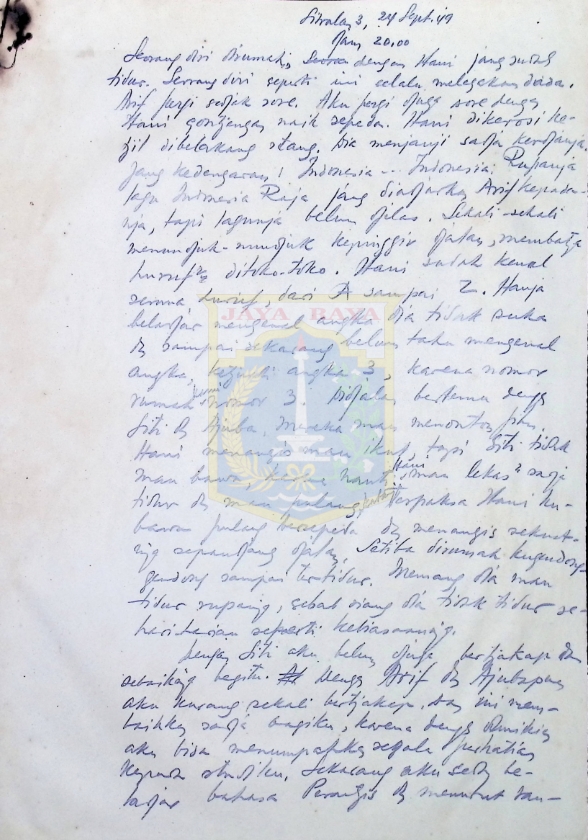 Sitralaya 3, 24 Sept. '49
Djam, 20.00
Seorang diri dirumah, dengan Hani jang sudah
tidur. Seorang diri seperti ini selalu melegakan dada.
Arif pergi sedjak sore. Aku pergi djuga sore dengan
Hani gontjengan naik sepeda. Hani dikerosi ke-
tjil dibelakang stang. Dia menjanji sadja kerdjanja.
Jang kedengaran: Indonesia -- Indonesia. Rupanja
lagu Indonesia Raja jang diadjarkan Arif kepada-
nja, tapi lagunja belum djelas. Sekali-sekali
menundjuk-nundjuk kepinggir djalan, membatja
huruf² ditoko-toko. Hani sudah kenal
semua huruf, dari A sampai Z. Hanja
beladjar mengenal angka dia tidak suka
dan sampai sekarang belum tahu mengenal
angka, ketjuali angka 3, karena nomor
rumah kami nomor 3. Didjalan bertemu dengan
Siti dan Ajuba. Mereka mau menonton film.
Hani menangis mau ikut, tapi Siti tidak
mau bawa karena nanti Hani mau lekas² sadja
tidur dan mau pulang, katanja. Terpaksa Hani ku-
bawa pulang bersepeda dan menangis sekuat-
nja sepandjang djalan. Setiba dirumah kugendong-
gendong sampai tertidur. Memang dia mau
tidur rupanja, sebab siang dia tidak tidur se-
hari-harian seperti kebiasaannja.
Dengan Siti aku belum djuga bertjakap dan
sebaiknja begitu. Dengan Arif dan Ajubapun
aku kurang sekali bertjakap, dan ini mem-
baikkan sadja bagiku, karena dengan demikian
aku bisa menumpahkan segala perhatian
kepada studiku. Sekarang aku sedang be-
ladjar bahasa Perantjis dan menurut ran-
JAYA RAYA